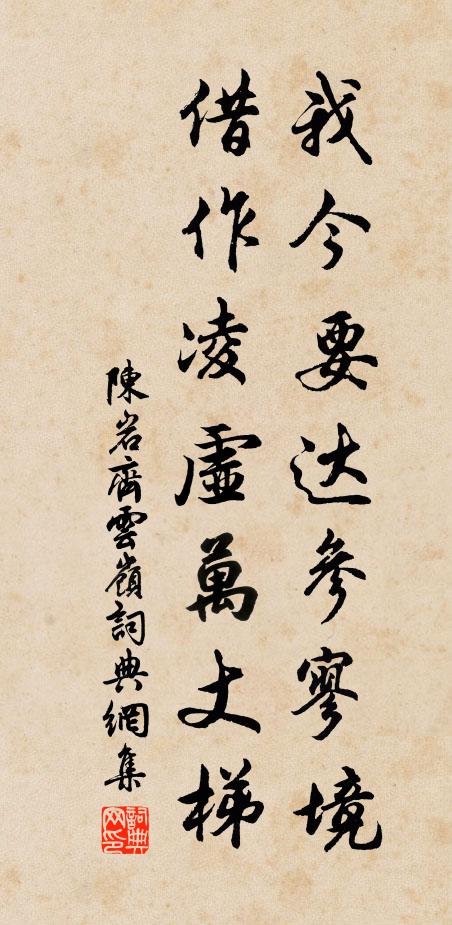 我今要达參寥境
借作凌虛萬丈梯
陳岩齊雲嶺詞典網集
詞典
网印